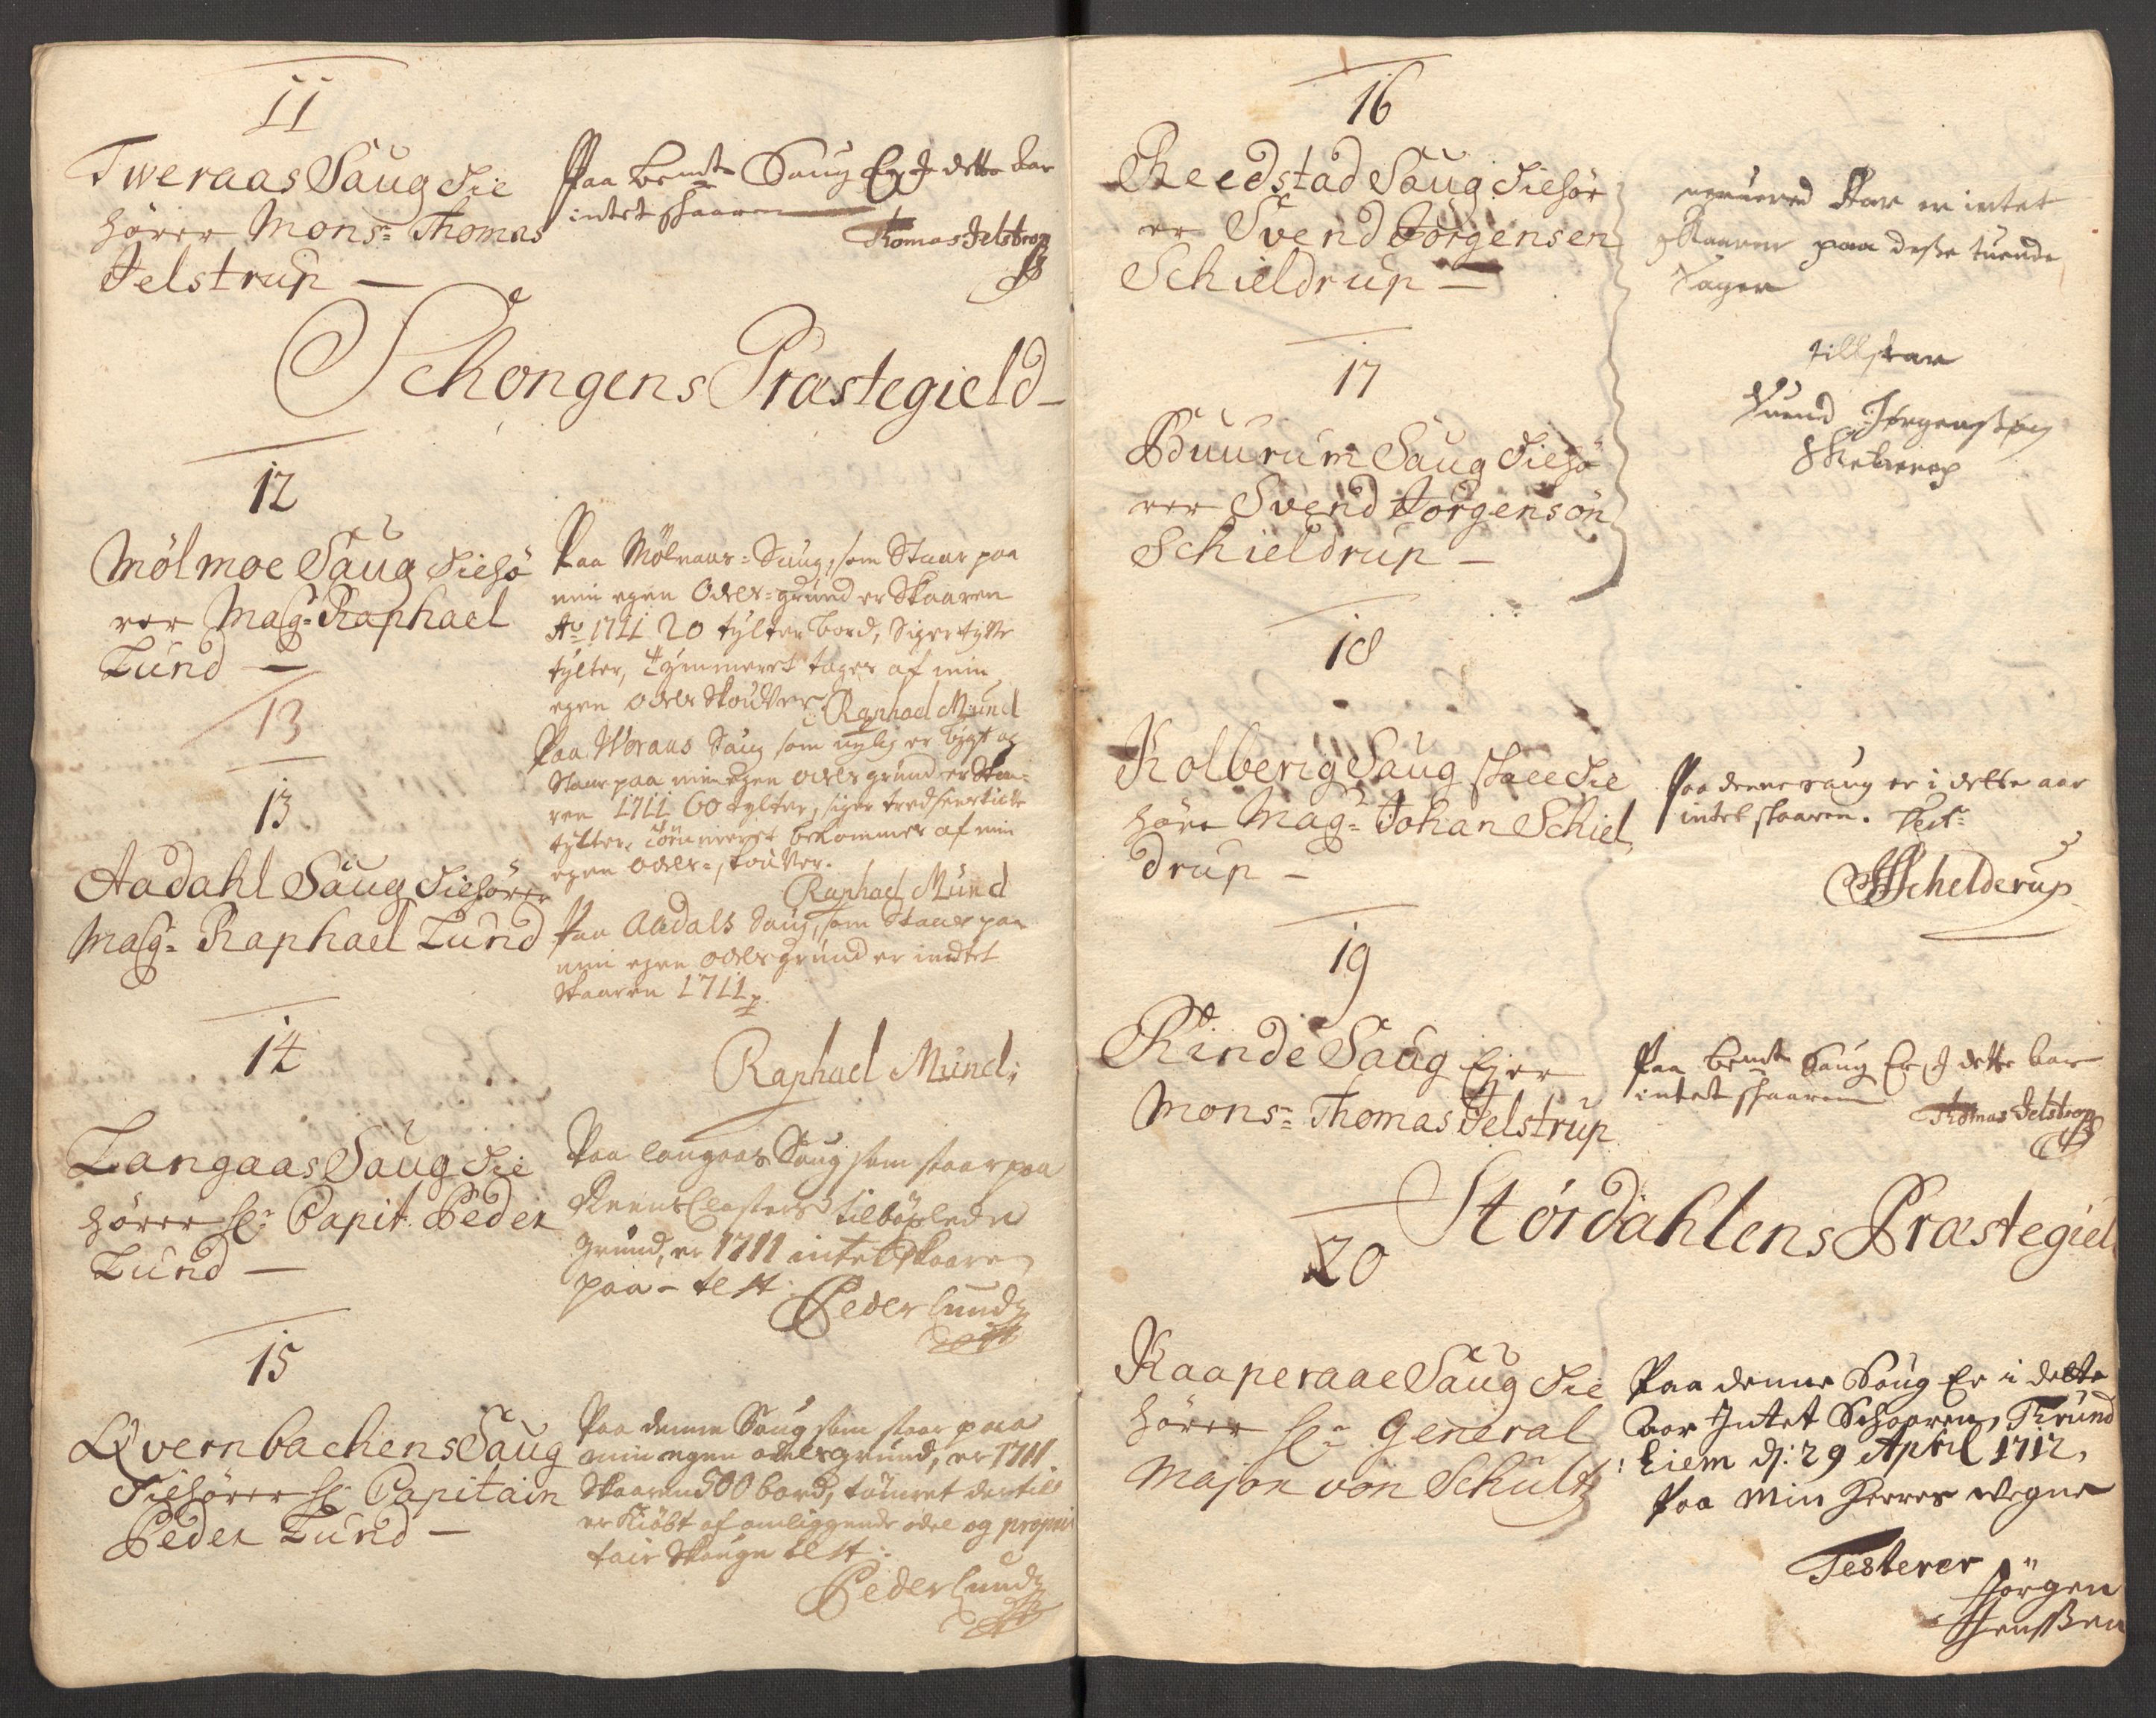 11
Tweraas Saug Tie
hörer Mons:r Thomas
Jelstrup —
Paa bemte Saug Er J dette Aar
intet skaaren
Thomas Jelstrop
Schongens Præstegield
12
Mölmoe Saug Tiehö
rer Mag:r Raphael
Lund —
Paa Mölnaas=Saug, som Staar paa
min egen Odels=grund er Skaaren
Ao 1711 20 tylter bord, Siger tyffve
tylter, Tymmeret tages af min
egen odels Skouver.
Raphael Mund
13
Paa Woraas Saug som nylig er bygt og
Staar paa min egen odels grund er Skaa=
ren 1711 60 tylter, siger tredsenstiuffve
tylter, tömmeret bekommes af min
egen odels=skouver.
Raphael Mund
13
Aadahl Saug Tiehörer
Mag:r Raphael Lund
Paa Aadals Saug, som Staar paa
min egen odels grund er indtet
Skaaren 1711
Raphael Mund
14
Langaas Saug Tie
hörer Sl:r Capit: Peder
Lund —
Paa langaas Saug som staar paa
Reens Closters
grund, er 1711 intet skaaren
paa – test:
Peder Lund
15
Qvernbachens Saug
Tiehörer Sl:r Capitain
Peder Lund —
Paa denne Saug som staar paa
min egen odelsgrund, er 1711
Skaaren 500 bord, tömret dertil
er kiöbt af omliggende odel og propri
tair Skouge test:
Peder Lund
16
Reedstad Saug Tiehör
er Svend Jörgensen
Schieldrup —
Aar er intet
skaaren paa desse tuende
Sager
tilstaar
Svend Jörgensøn
17
Buurum Saug Tiehö
rer Svend Jörgensön
Schieldrup —
18
Kolberig Saug skall Tie
höre Mag:r Johan Schiel
drup —
Paa denne saug er i dette aar
intet skaaren. Test:
Schelderup
19
Rinde Saug Ejer
Mons:r Thomas Jelstrup
Paa bemte Saug Er J dette Aar
intet skaaren
Thomas Jelstrop
Stördahlens Præstegiel
20
Kaaperaae Saug Tie
hörer Sl:r General
Major von Schultz
Paa denne Saug Er i dette
Aar Intet Schaaren, Trund
hiem d: 29 April 1712,
Paa Min Herres Vegne
Testerer
Jörgen
Jenssen